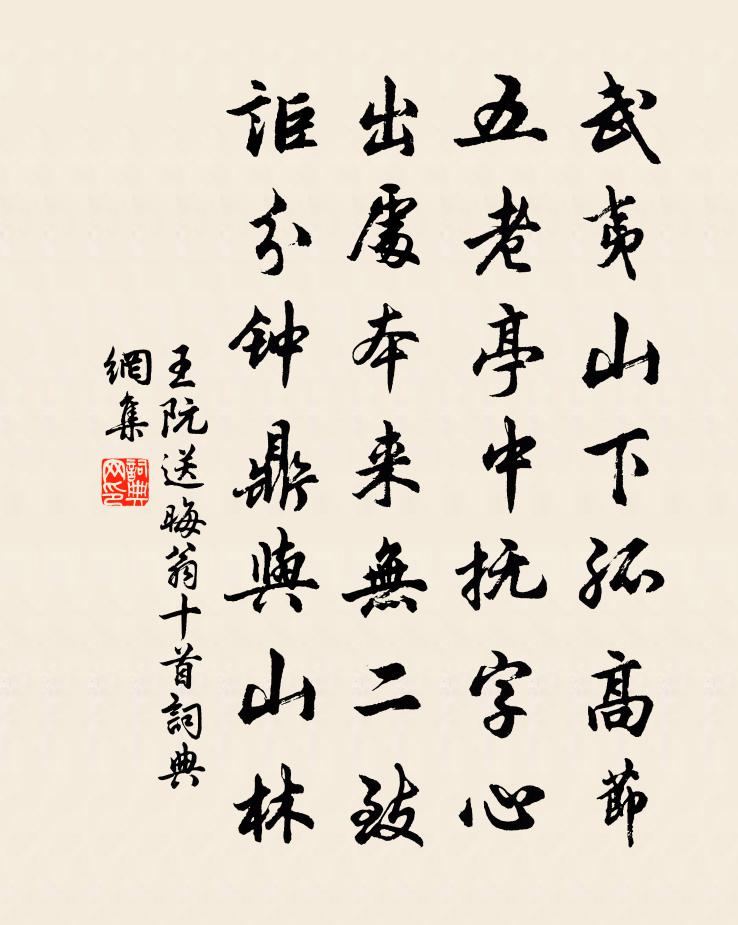 武夷山下孤高節
五老亭中抚字心
出處本来無二致
詎分钟鼎與山林
王阮送晦翁十首詞典
網集
詞典
网印